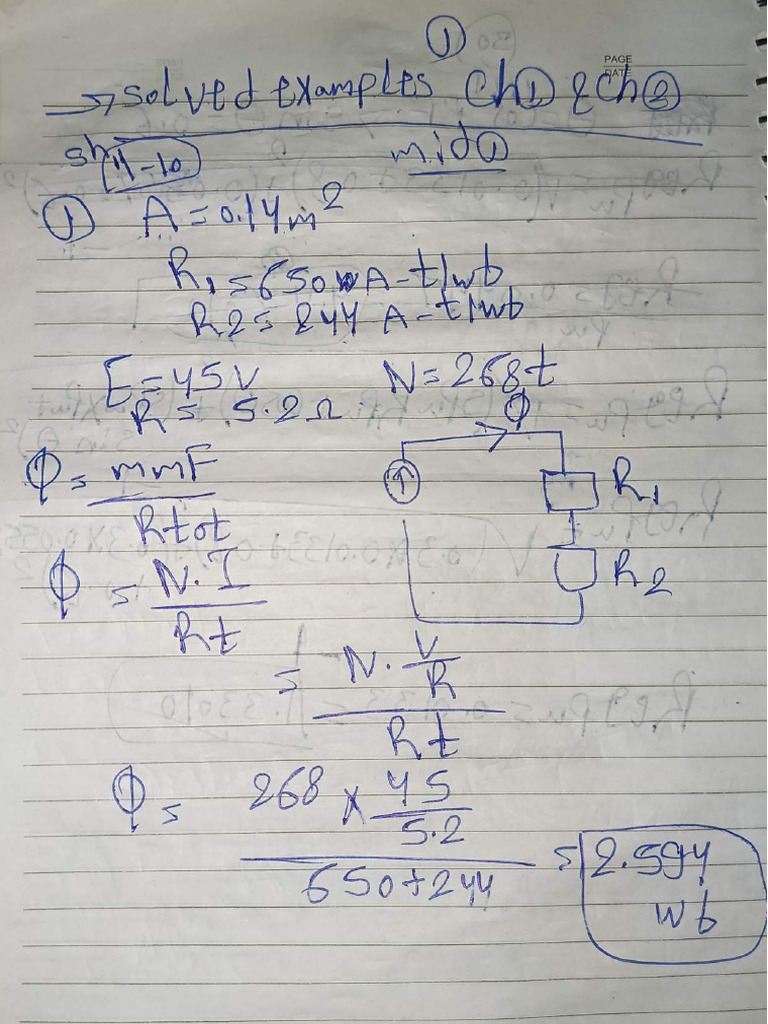 ①
PAGE
DATE
→ solved examples Ch① & Ch②
sh 4-10
mid①
① A = 0.14 m²
R₁ = 650 A-t/wb
R2 = 244 A-t/wb
E = 45 V N = 268 t
R = 5.2 Ω
Φ
Φ = mmF / Rtot
R₁
Φ = N.I / Rt
R₂
= N. V/R / Rt
Φ = 268 × 45/5.2 / 650+244 = 2.594 wb